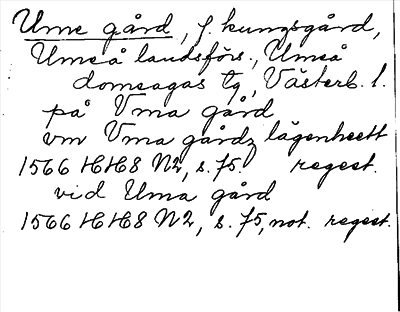 Ume gård, f. kungsgård,
Umeå landsförs., Umeå
domsagas tg, Västerb. l.
på Vma gård
vm Vma gårdz lägenheett
1566 HH8 N2, s. 75. regest.
vid Uma gård
1566 HH8 N2, s. 75, not. regest.